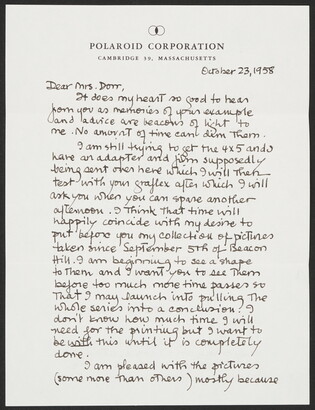 POLAROID CORPORATION
CAMBRIDGE 39, MASSACHUSETTS
October 23, 1958
Dear Mrs. Dorr,
It does my heart so good to hear
from you as memories of your example
and advice are beacons of light to
me. No amount of time can dim them.
I am still trying to get the 4x5 and
have an adapter and film supposedly
being sent over here which I will then
test with your graflex after which I will
ask you when you can spare another
afternoon. I think that time will
happily coincide with my desire to
put before you my collection of pictures
taken since September 5th of Beacon
Hill. I am beginning to see a shape
to them and I want you to see them
before too much more time passes so
that I may launch into pulling the
whole series into a conclusion. I
don't know how much time I will
need for the printing but I want to
be with this until it is completely
done.
I am pleased with the pictures
(some more than others) mostly because